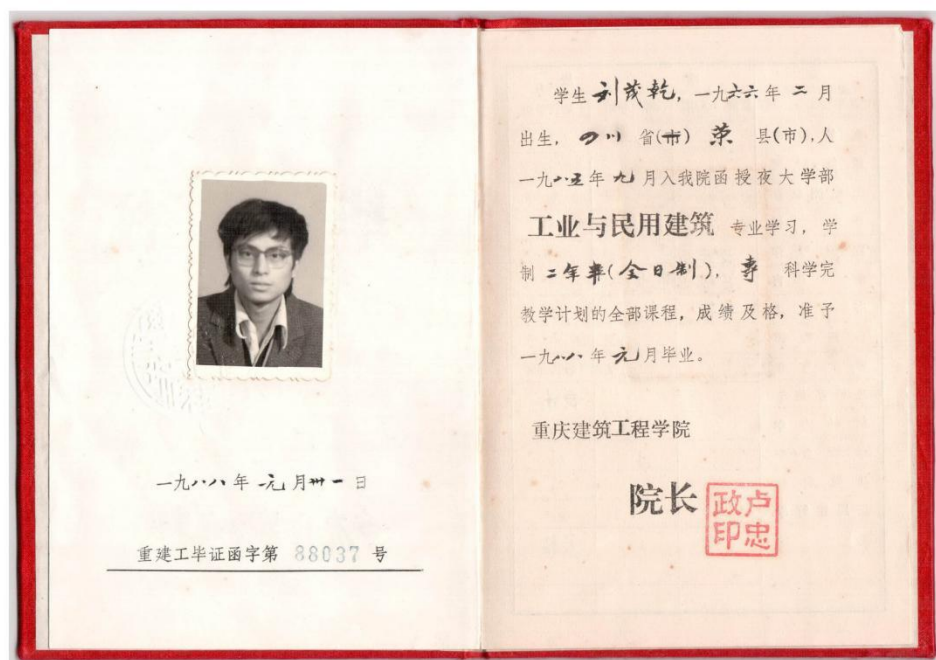 一九八八年元月卅一日
重建工毕证函字第 88037 号
学生刘茂乾，一九六六年二月
出生，四川省(市)荣县(市)，人
一九八五年九月入我院函授夜大学部
工业与民用建筑 专业学习，学
制二年半(全日制)，专科学完
教学计划的全部课程，成绩及格，准予
一九八八年元月毕业。
重庆建筑工程学院
院长
卢忠
政印